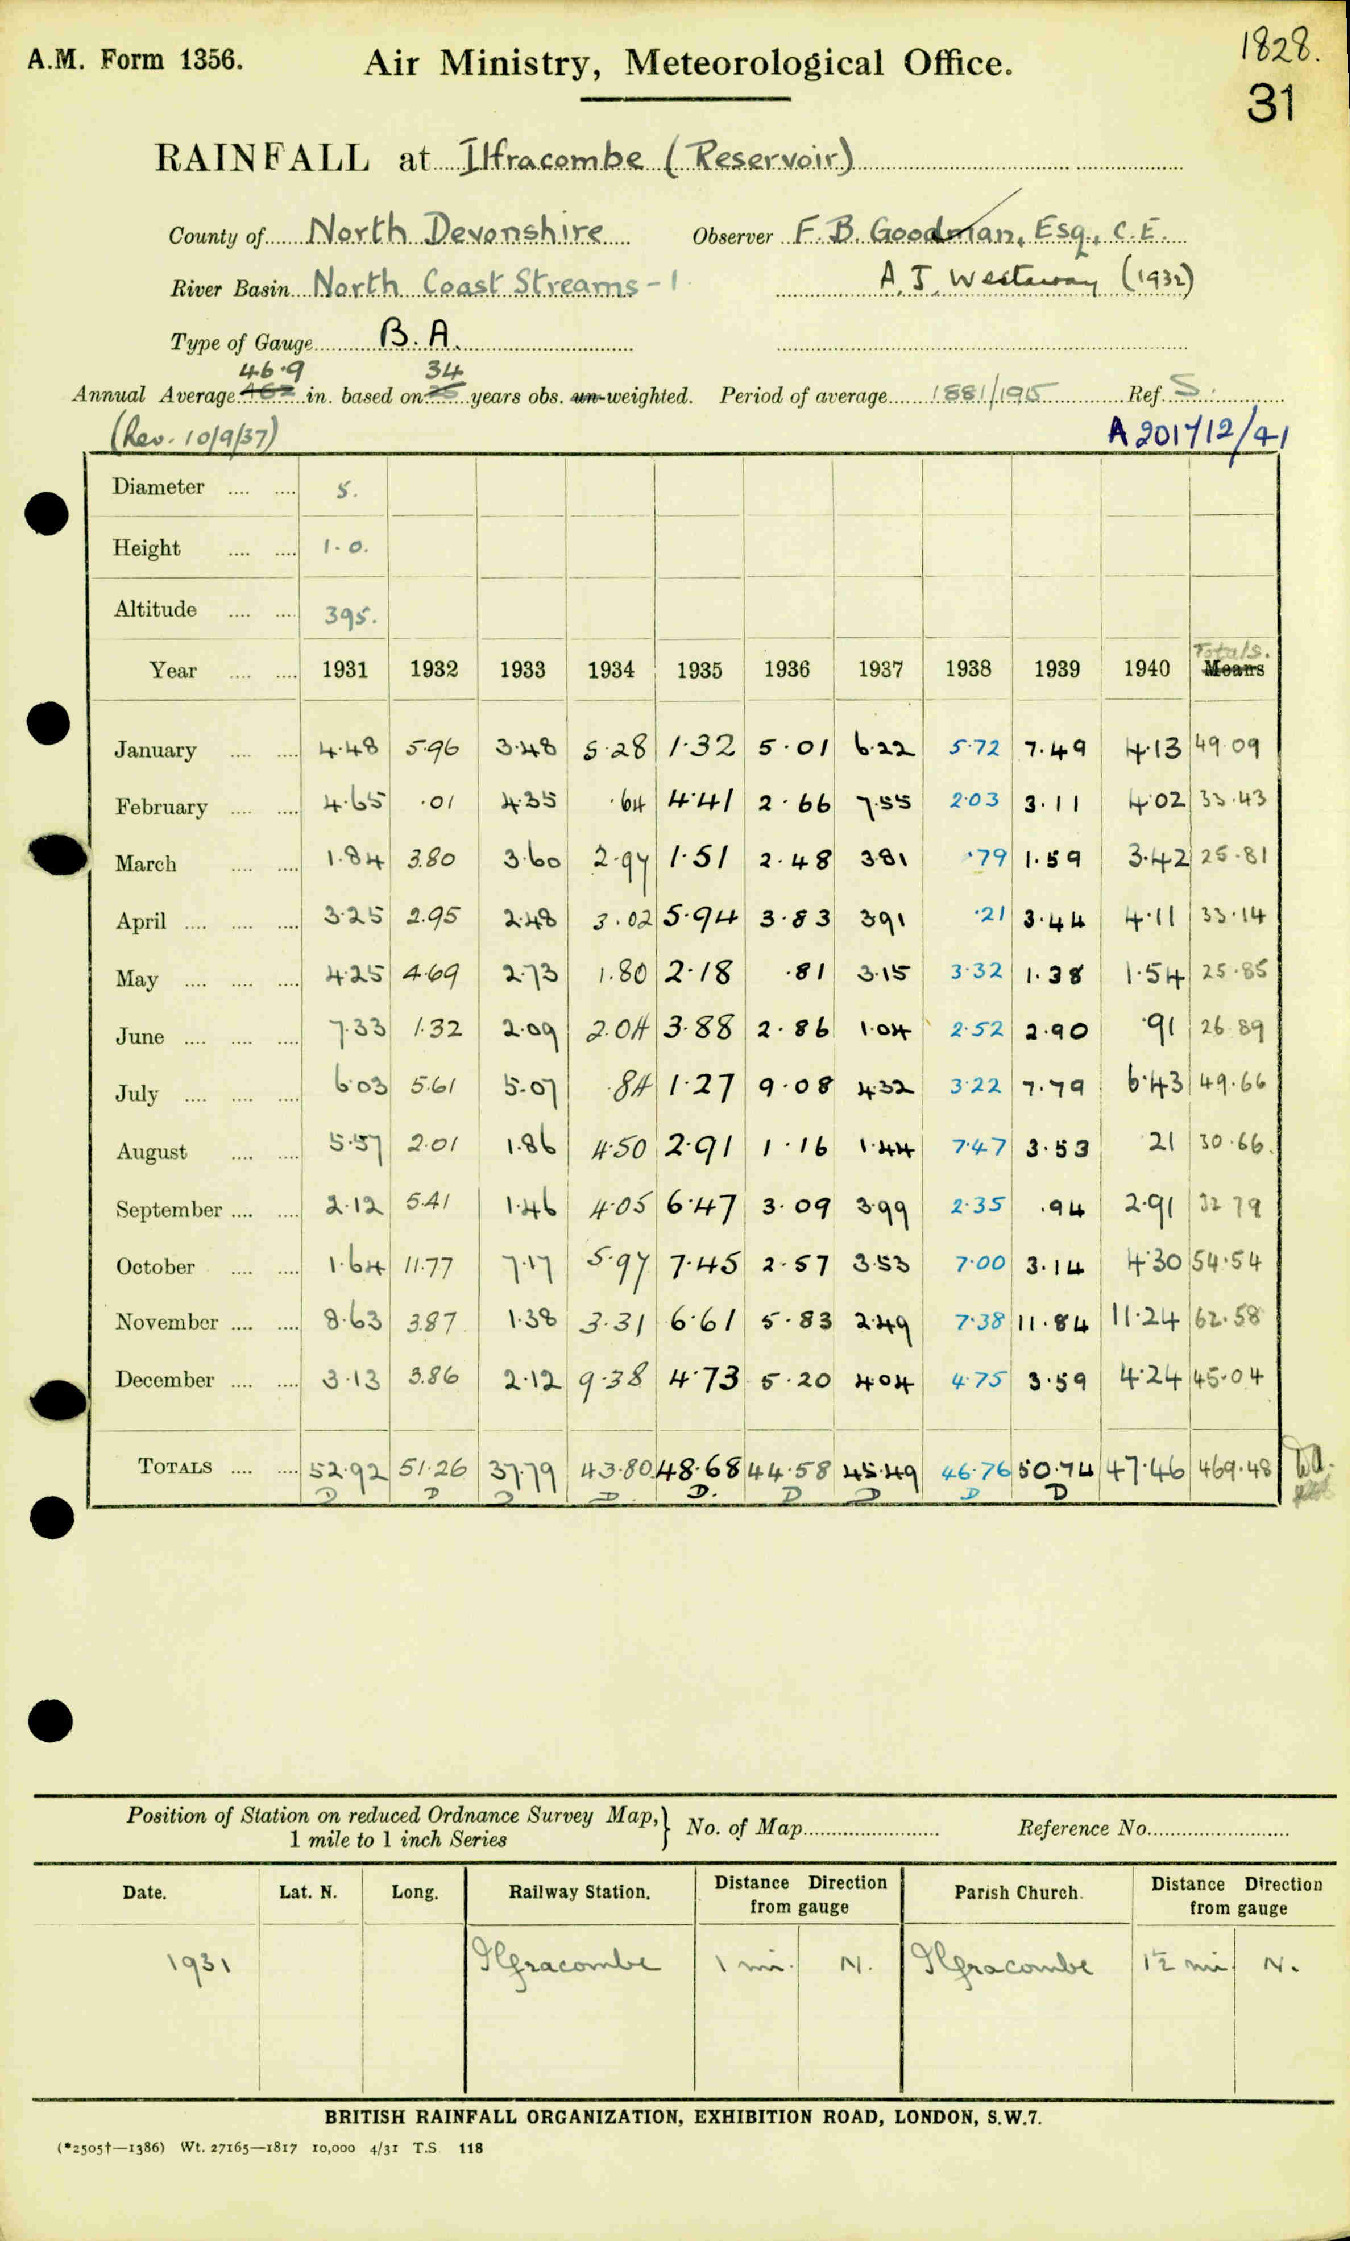 A.M. Form 1356. Air Ministry, Meteorological Office. 1828.
31
RAINFALL at Ilfracombe (Reservoir)
County of North Devonshire Observer F. B. Goodman, Esq., C.E.
River Basin North Coast Streams - 1 A. J. Westaway (1932)
Type of Gauge B. A.
46.9 34
Annual Average in. based on years obs. un-weighted. Period of average 1881/1915 Ref. S.
(Rev. 10/9/37) A201712/41
Diameter .... .... 5.
Height .... .... 1.0.
Altitude .... .... 395.
Totals.
Year .... .... 1931 1932 1933 1934 1935 1936 1937 1938 1939 1940 Means
January .... .... 4.48 5.96 3.48 5.28 1.32 5.01 6.22 5.72 7.49 4.13 49.09
February .... .... 4.65 .01 4.35 .64 4.41 2.66 7.55 2.03 3.11 4.02 33.43
March .... .... 1.84 3.80 3.60 2.97 1.51 2.48 3.81 .79 1.59 3.42 25.81
April .... .... .... 3.25 2.95 2.48 3.02 5.94 3.83 3.91 .21 3.44 4.11 33.14
May .... .... .... 4.25 4.69 2.73 1.80 2.18 .81 3.15 3.32 1.38 1.54 25.85
June .... .... .... 7.33 1.32 2.09 2.04 3.88 2.86 1.04 2.52 2.90 .91 26.89
July .... .... .... 6.03 5.61 5.07 .84 1.27 9.08 4.32 3.22 7.79 6.43 49.66
August .... .... 5.57 2.01 1.86 4.50 2.91 1.16 1.44 7.47 3.53 21 30.66
September .... .... 2.12 5.41 1.46 4.05 6.47 3.09 3.99 2.35 .94 2.91 32.79
October .... .... 1.64 11.77 7.17 5.97 7.45 2.57 3.53 7.00 3.14 4.30 54.54
November .... .... 8.63 3.87 1.38 3.31 6.61 5.83 2.49 7.38 11.84 11.24 62.58
December .... .... 3.13 3.86 2.12 9.38 4.73 5.20 4.04 4.75 3.59 4.24 45.04
TOTALS .... .... 52.92 51.26 37.79 43.80 48.68 44.58 45.49 46.76 50.74 47.46 469.48
D D D D. D. D D D D
Position of Station on reduced Ordnance Survey Map,} No. of Map Reference No.
1 mile to 1 inch Series
Date. Lat. N. Long. Railway Station. Distance Direction from gauge Parish Church. Distance Direction from gauge
1931 Ilfracombe 1 mi. N. Ilfracombe 1½ mi N.
BRITISH RAINFALL ORGANIZATION, EXHIBITION ROAD, LONDON, S.W.7.
(*2505†—1386) Wt. 27165—1817 10,000 4/31 T.S. 118